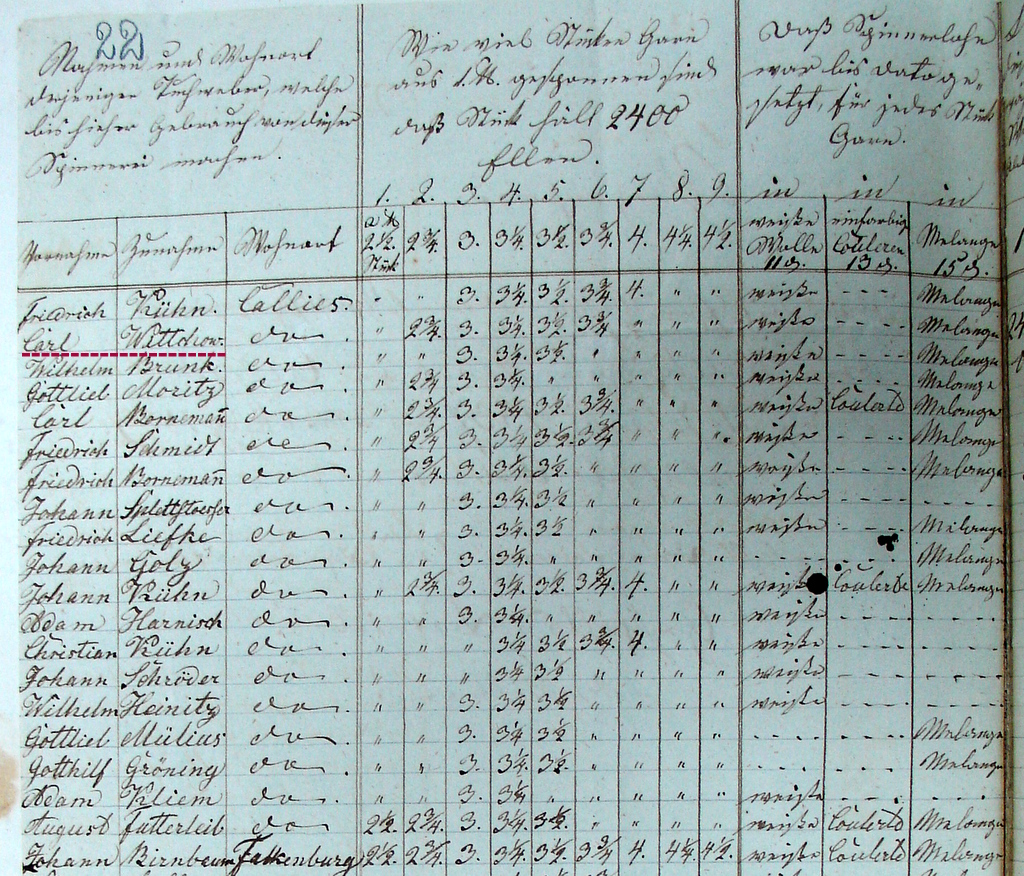 22
Nahmen und Wohnort
derjenigen Tuchweber, welche
bis hieher Gebrauch von dieser
Spinnerei machen.
Wie viel Stücken Garn
aus 1 ℔. gesponnen sind
daß Stück hält 2400
Ellen.
Daß Spinnerlohn
war bis dato ge-
setzt, für jedes Stück
Garn.
1. 2. 3. 4. 5. 6. 7 8. 9. in in in
Vornahme Zunahme Wohnort a ℔ 2½. Stück 2¾. 3. 3¼. 3½. 3¾. 4. 4¼. 4½. weiße Wolle 11 d. einfarbig Couleren 13 d. Melange 15 d.
Friedrich Kühn. Callies. " " 3. 3¼. 3½. 3¾. 4. " " weiße Melange
Carl Wittchow. do. " 2¾. 3. 3¼. 3½. 3¾ " " " weiße - - - - Melange
Wilhelm Brunk. do. " " 3. 3¼. 3½. " " " " weiße - - - - Melange
Gottlieb Moritz do. " 2¾ 3. 3¼. " " " " " weiße - - - - Melange
Carl Bornemañ do. " 2¾. 3. 3¼ 3½. 3¾. " " " weiße Coulerte Melange
Friedrich Schmidt do. " 2¾ 3. 3¼ 3½. 3¾ " " " weiße - - - - Melange
Friedrich Bornemañ do. " 2¾. 3. 3¼. 3½. " " " " weiße - - - - Melange
Johann Splettstoesser do. " " 3. 3¼. 3½ " " " " weiße - - - - - - - -
Friedrich Liefke do. " " 3. 3¼. 3½ " " " " weiße - - - - Melange
Johann Goly do. " " 3. 3¼. " " " " " - - - - - - - - Melange
Johann Kühn do. " 2¾. 3. 3¼. 3½. 3¾. 4. " " weiße Coulerte Melange
Adam Harnisch do. " " 3. 3¼. " " " " " weiße - - - - - - - -
Christian Kühn do. " " " 3¼ 3½ 3¾. 4. " " weiße - - - - - - - -
Johann Schröder do. " " " 3¼ 3½ " " " " weiße - - - - - - - -
Wilhelm Heinitz do. " " 3. 3¼ 3½ " " " " weiße - - - - - - - -
Gottlieb Mülius do. " " 3. 3¼ 3½ " " " " - - - - - - - - Melange
Gotthilf Gröning do. " " 3. 3¼. 3½. " " " " - - - - - - - - Melange
Adam Kliem do. " " 3. 3¼ " " " " " weiße - - - - - - - -
August Futterleib do. 2½. 2¾. 3. 3¼. 3½. " " " " weiße Coulerte Melange
Johann Birnbaum Falkenburg 2½. 2¾. 3. 3¼. 3½. 3¾ 4. 4¼. 4½. weiße Coulerte Melange